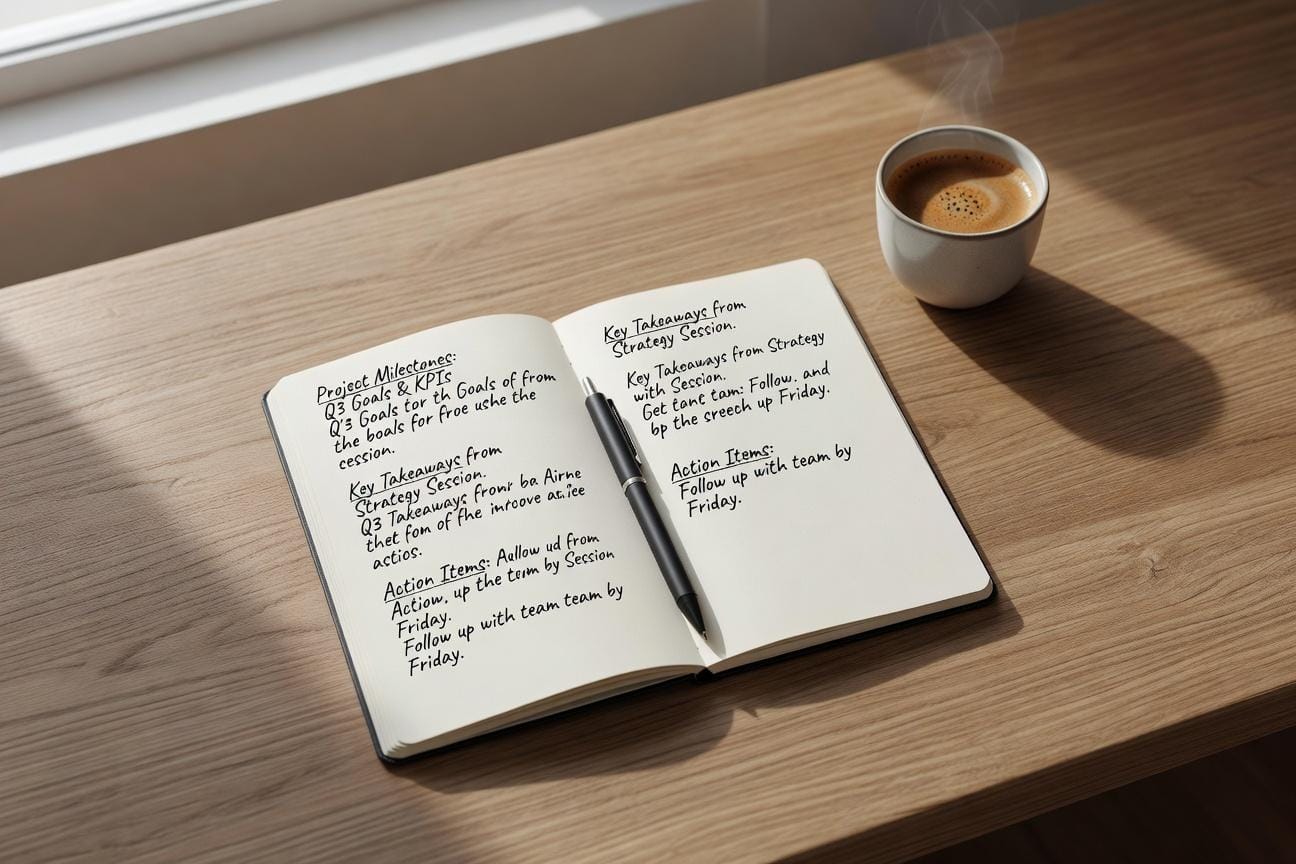 Project Milestones:
Q3 Goals & KPIs
Q'3 Goals tor th Goals of from
the boals for froe ushe the
cession.
Key Takeaways from
Strategy Session.
Q3 Takeaways from ba Airne
thet fom of fhe introove
actios.
Action Items: Aullow ud from
Action, up the team by Session
Friday.
Follow up with team team by
Friday.
Key Takeaways from
Strategy Session.
Key Takeaways from Strategy
with Session.
Get tant tam: Follow. and
bp the sreech up Friday.
Action Items:
Follow up with team by
Friday.